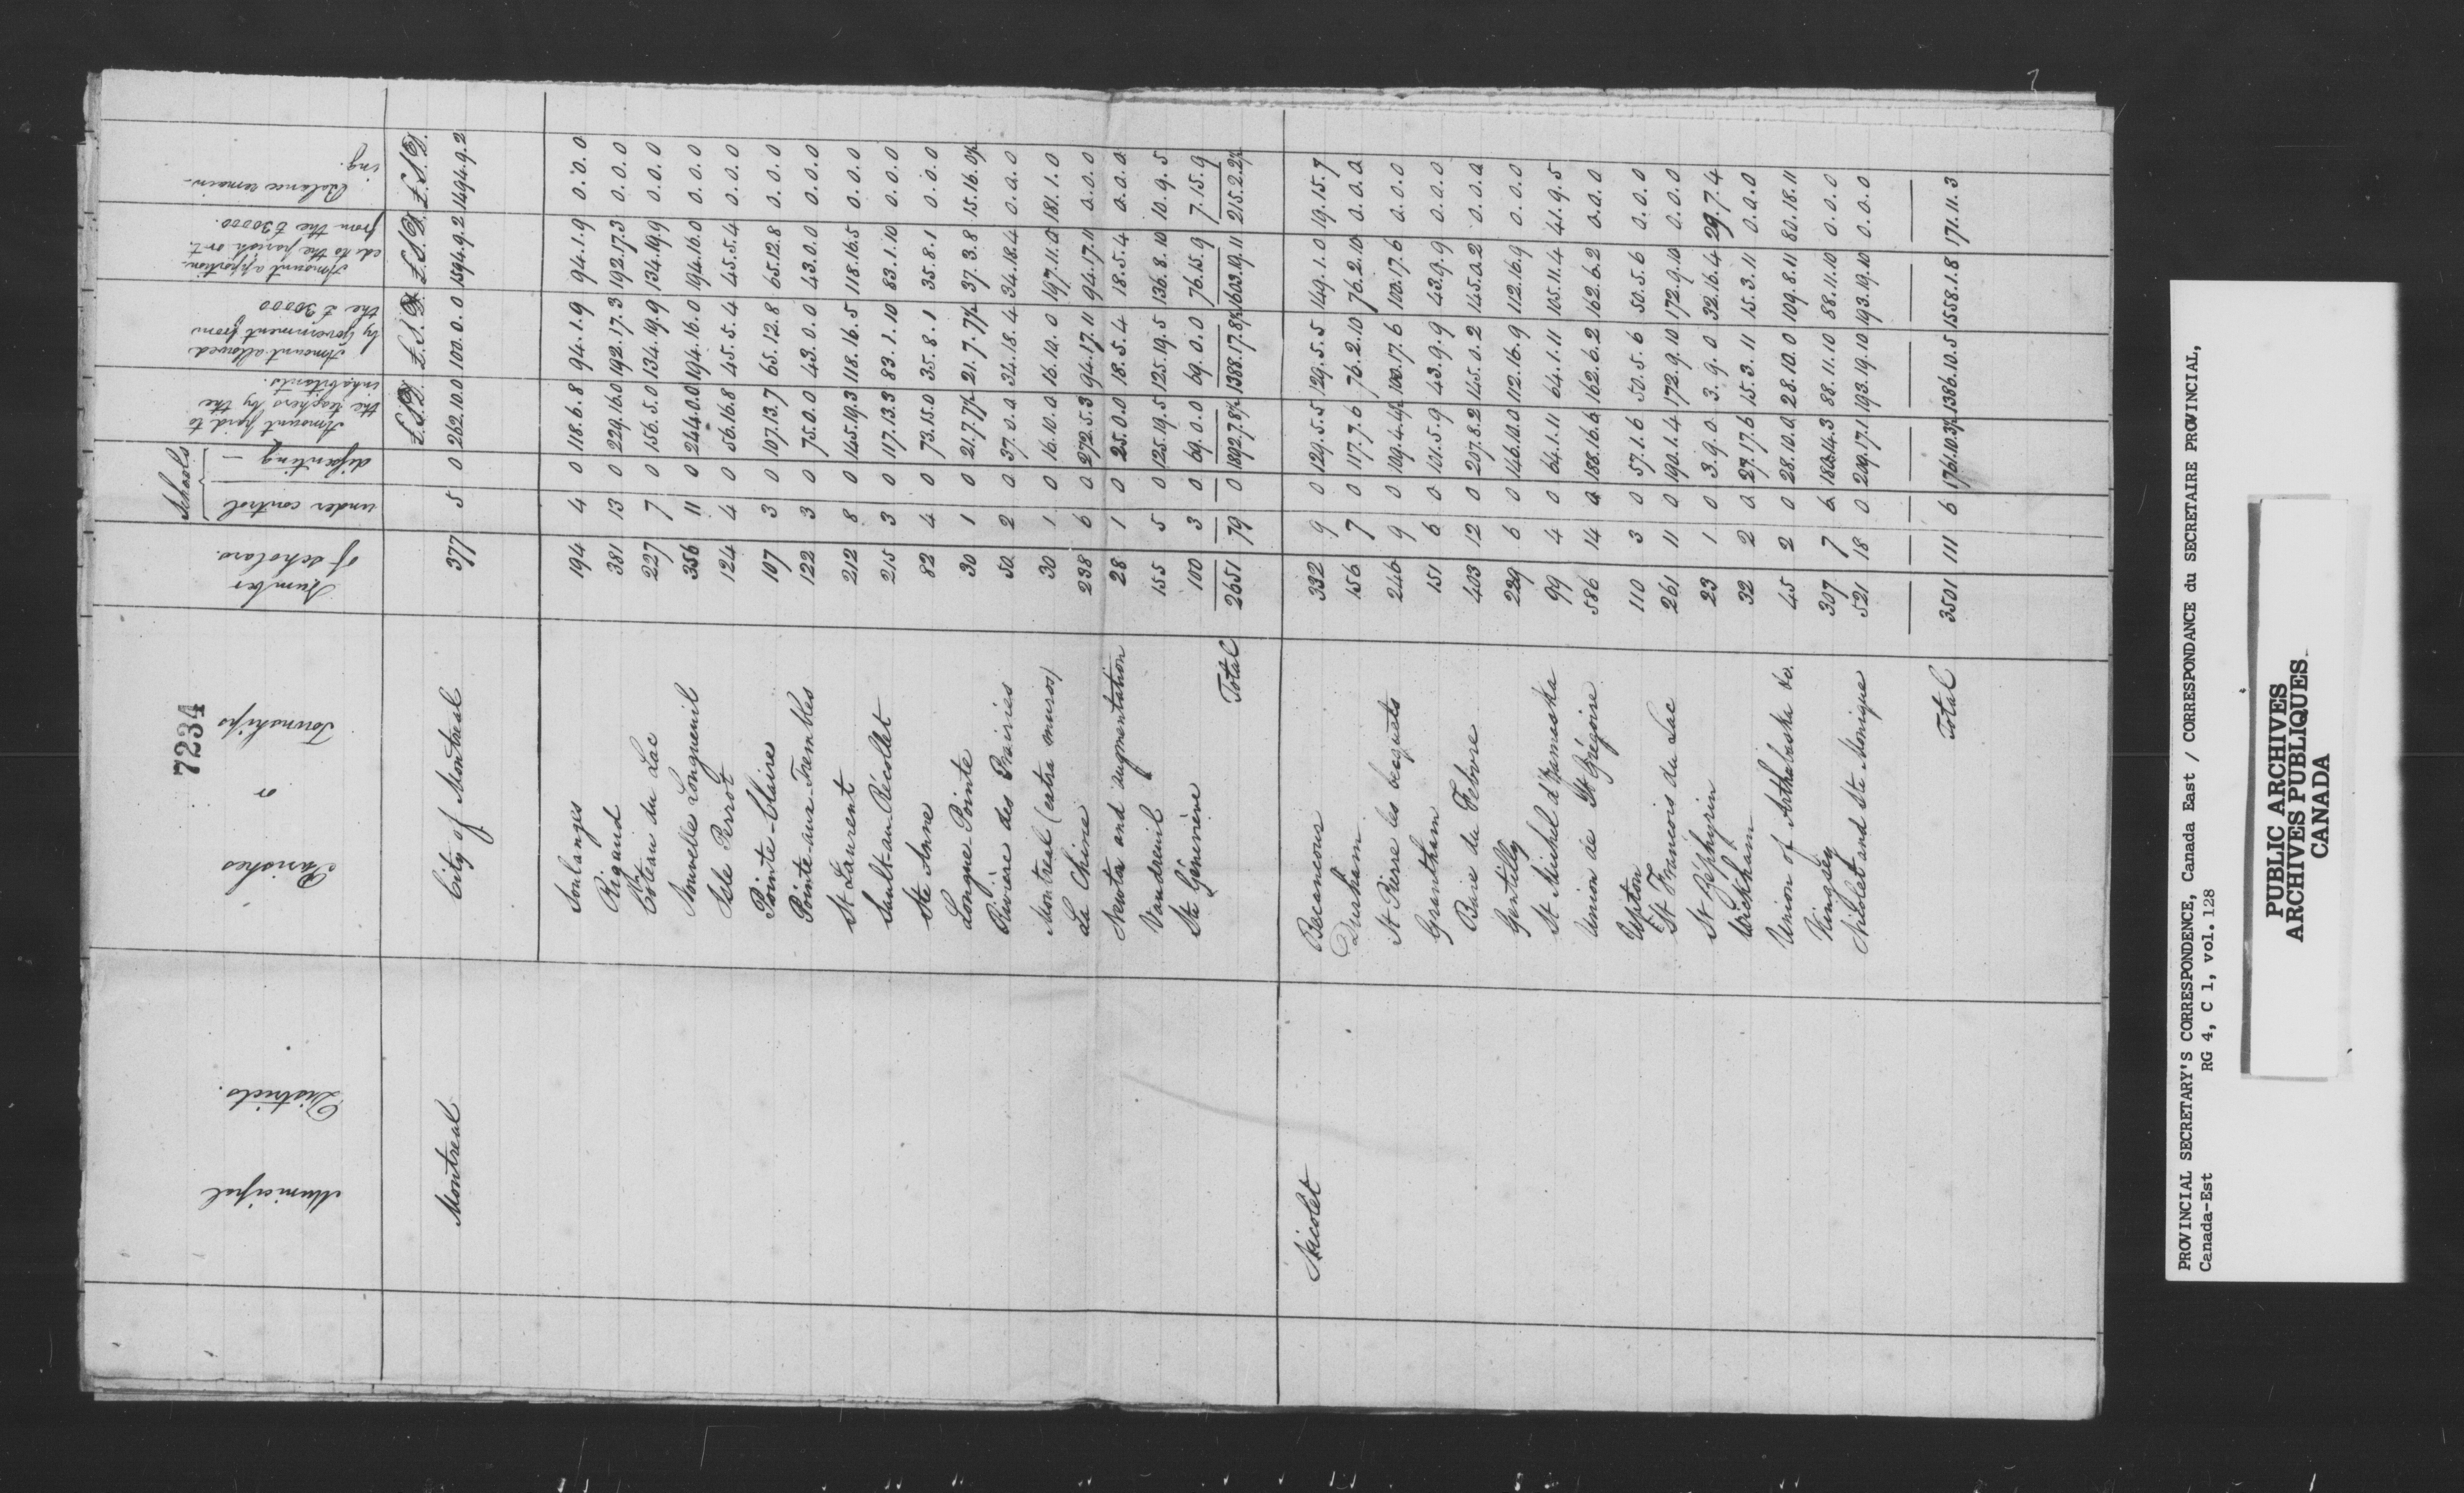 7234
Municipal Districts. | Parishes or Townships | Number of scholars. | Schools under control | dissenting | Amount paid to the teachers by the inhabitants. | Amount allowed by Government from the £30000 | Amount apportioned to the parish or t. from the £30000. | Balance remaining.
£.S.D. £.S.D. £.S.D. £.S.D.
Montreal City of Montreal 377 5 0 262.10.0 100.0.0 1594.9.2 1494.9.2
Soulanges 194 4 0 118.6.8 94.1.9 94.1.9 0.0.0
Rigaud 381 13 0 229.16.0 192.17.3 192.17.3 0.0.0
Côteau du Lac 227 7 0 156.5.0 134.19.9 134.19.9 0.0.0
Nouvelle Longueuil 356 11 0 244.0.0 194.16.0 194.16.0 0.0.0
Isle Perrot 124 4 0 56.16.8 45.5.4 45.5.4 0.0.0
Pointe-Claire 107 3 0 107.13.7 65.12.8 65.12.8 0.0.0
Pointe-aux-Trembles 122 3 0 75.0.0 43.0.0 43.0.0 0.0.0
St Laurent 212 8 0 145.19.3 118.16.5 118.16.5 0.0.0
Sault-au-Récollet 215 3 0 117.13.3 83.1.10 83.1.10 0.0.0
Ste Anne 82 4 0 73.15.0 35.8.1 35.8.1 0.0.0
Longue Pointe 30 1 0 21.7.7½ 21.7.7½ 37.3.8 15.16.0½
Rivière des Prairies 50 2 0 37.0.0 34.18.4 34.18.4 0.0.0
Montreal (extra muros) 30 1 0 16.10.0 16.10.0 197.11.0 181.1.0
La Chine 238 6 0 272.5.3 94.17.11 94.17.11 0.0.0
Newton and augmentation 28 1 0 25.0.0 18.5.4 18.5.4 0.0.0
Vaudreuil 155 5 0 125.19.5 125.19.5 136.8.10 10.9.5
Ste Géneviève 100 3 0 69.0.0 69.0.0 76.15.9 7.15.9
Total 2651 79 0 1892.7.8½ 1388.17.8½ 1603.19.11 215.2.2½
Nicolet Becancour 332 9 0 129.5.5 129.5.5 149.1.0 19.15.7
Durham 156 7 0 117.7.6 76.2.10 76.2.10 0.0.0
St Pierre les becquets 246 9 0 109.4.4½ 100.17.6 100.17.6 0.0.0
Grantham 151 6 0 101.5.9 43.9.9 43.9.9 0.0.0
Baie du Febvre 403 12 0 207.8.2 145.0.2 145.0.2 0.0.0
Gentilly 229 6 0 146.10.0 112.16.9 112.16.9 0.0.0
St Michel d'Yamaska 99 4 0 64.1.11 64.1.11 105.11.4 41.9.5
Union de St Grégoire 586 14 0 188.16.6 162.6.2 162.6.2 0.0.0
Upton 110 3 0 57.1.6 50.5.6 50.5.6 0.0.0
St Francois du Lac 261 11 0 190.1.4 172.9.10 172.9.10 0.0.0
St Zéphyrin 23 1 0 3.9.0 3.9.0 32.16.4 29.7.4
Wickham 32 2 0 27.17.6 15.3.11 15.3.11 0.0.0
Union of Arthabaska &c. 45 2 0 28.10.0 28.10.0 109.8.11 80.18.11
Kingsey 307 7 6 180.14.3 88.11.10 88.11.10 0.0.0
Nicolet and Ste Monique 521 18 0 209.17.1 193.19.10 193.19.10 0.0.0
Total 3501 111 6 1761.10.3½ 1386.10.5 1558.1.8 171.11.3
PROVINCIAL SECRETARY'S CORRESPONDENCE, Canada East / CORRESPONDANCE du SECRETAIRE PROVINCIAL,
Canada-Est RG 4, C 1, vol. 128
PUBLIC ARCHIVES
ARCHIVES PUBLIQUES
CANADA